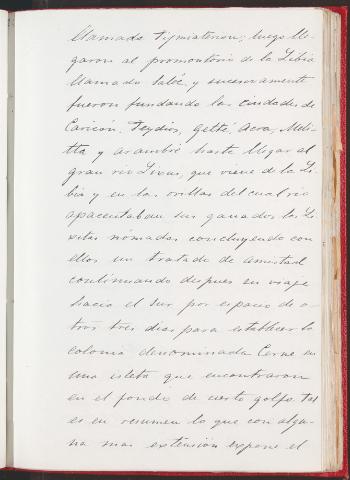 llamada Tigmiaterion; luego lle-
garon al promontorio de la Libia
llamado Saloé y sucesivamente
fueron fundando las ciudades de
Caricón, Teydios, Getté, Acra, Meli-
tta y Arambié hasta llegar al
gran rio Lixus, que viene de la Li-
bia y en las orillas del cual rio
apacentaban sus ganados los Li-
xitas nómadas concluyendo con
ellos un tratado de amistad
continuando despues su viaje
hacia el sur por espacio de o-
tros tres dias para establecer la
colonia denominada Cerne en
una isleta que encontraron
en el fondo de cierto golfo. Tal
es en resumen lo que con algu-
na mas extensión expone el